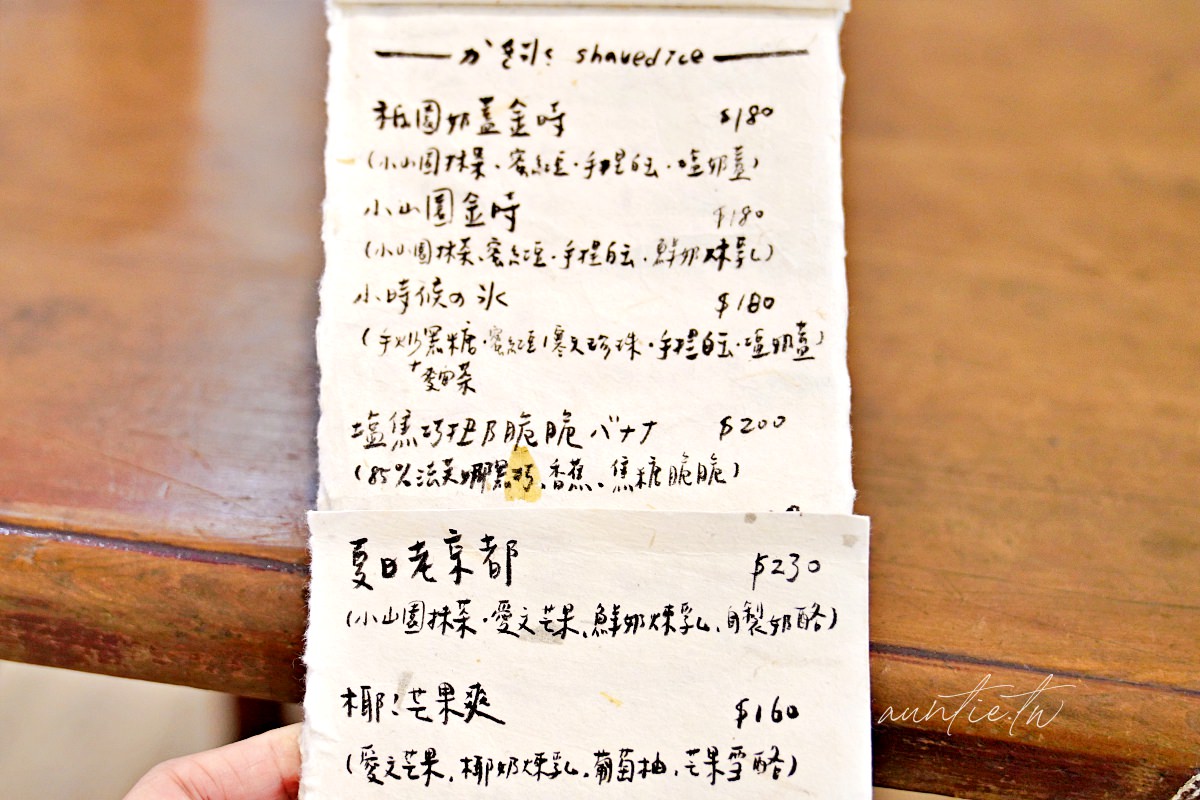 か き氷 shaved ice
祇園奶蓋金時 $180
(小山園抹茶、蜜紅豆・手撮白玉・塩奶蓋)
小山園金時 $180
(小山園抹茶、蜜紅豆・手撮白玉・鮮奶煉乳)
小時候の氷 $180
(手炒黑糖・蜜紅豆・寒天珍珠・手撮白玉・塩奶蓋)
塩焦巧 脆脆バナナ $200
(85% 法芙娜黑巧、香蕉、焦糖脆脆)
夏日老京都 $230
(小山園抹茶・愛文芒果、鮮奶煉乳、自製奶酪)
椰!芒果爽 $160
(愛文芒果、椰奶煉乳、葡萄柚、芒果雪酪)
auntie.tw